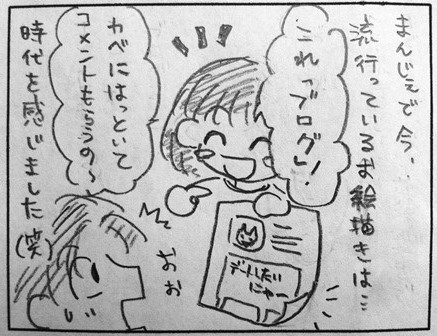 まんじぇで今、
流行っているお絵描きは…
これっブログ!
カベにはっといて
コメントもらうの〜
デートしたい
にゃー
おぉ
時代を感じました(笑)